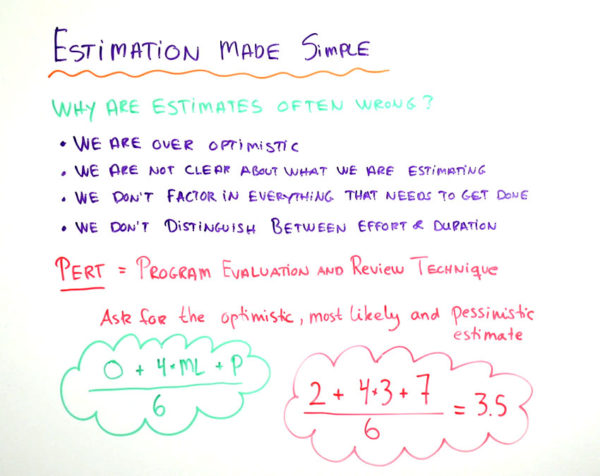 ESTIMATION MADE SIMPLE
WHY ARE ESTIMATES OFTEN WRONG?
• WE ARE OVER OPTIMISTIC
• WE ARE NOT CLEAR ABOUT WHAT WE ARE ESTIMATING
• WE DON'T FACTOR IN EVERYTHING THAT NEEDS TO GET DONE
• WE DON'T DISTINGUISH BETWEEN EFFORT & DURATION
PERT = PROGRAM EVALUATION AND REVIEW TECHNIQUE
Ask for the optimistic, most likely and pessimistic
estimate
O + 4*ML + P
6
2 + 4*3 + 7
6
= 3.5